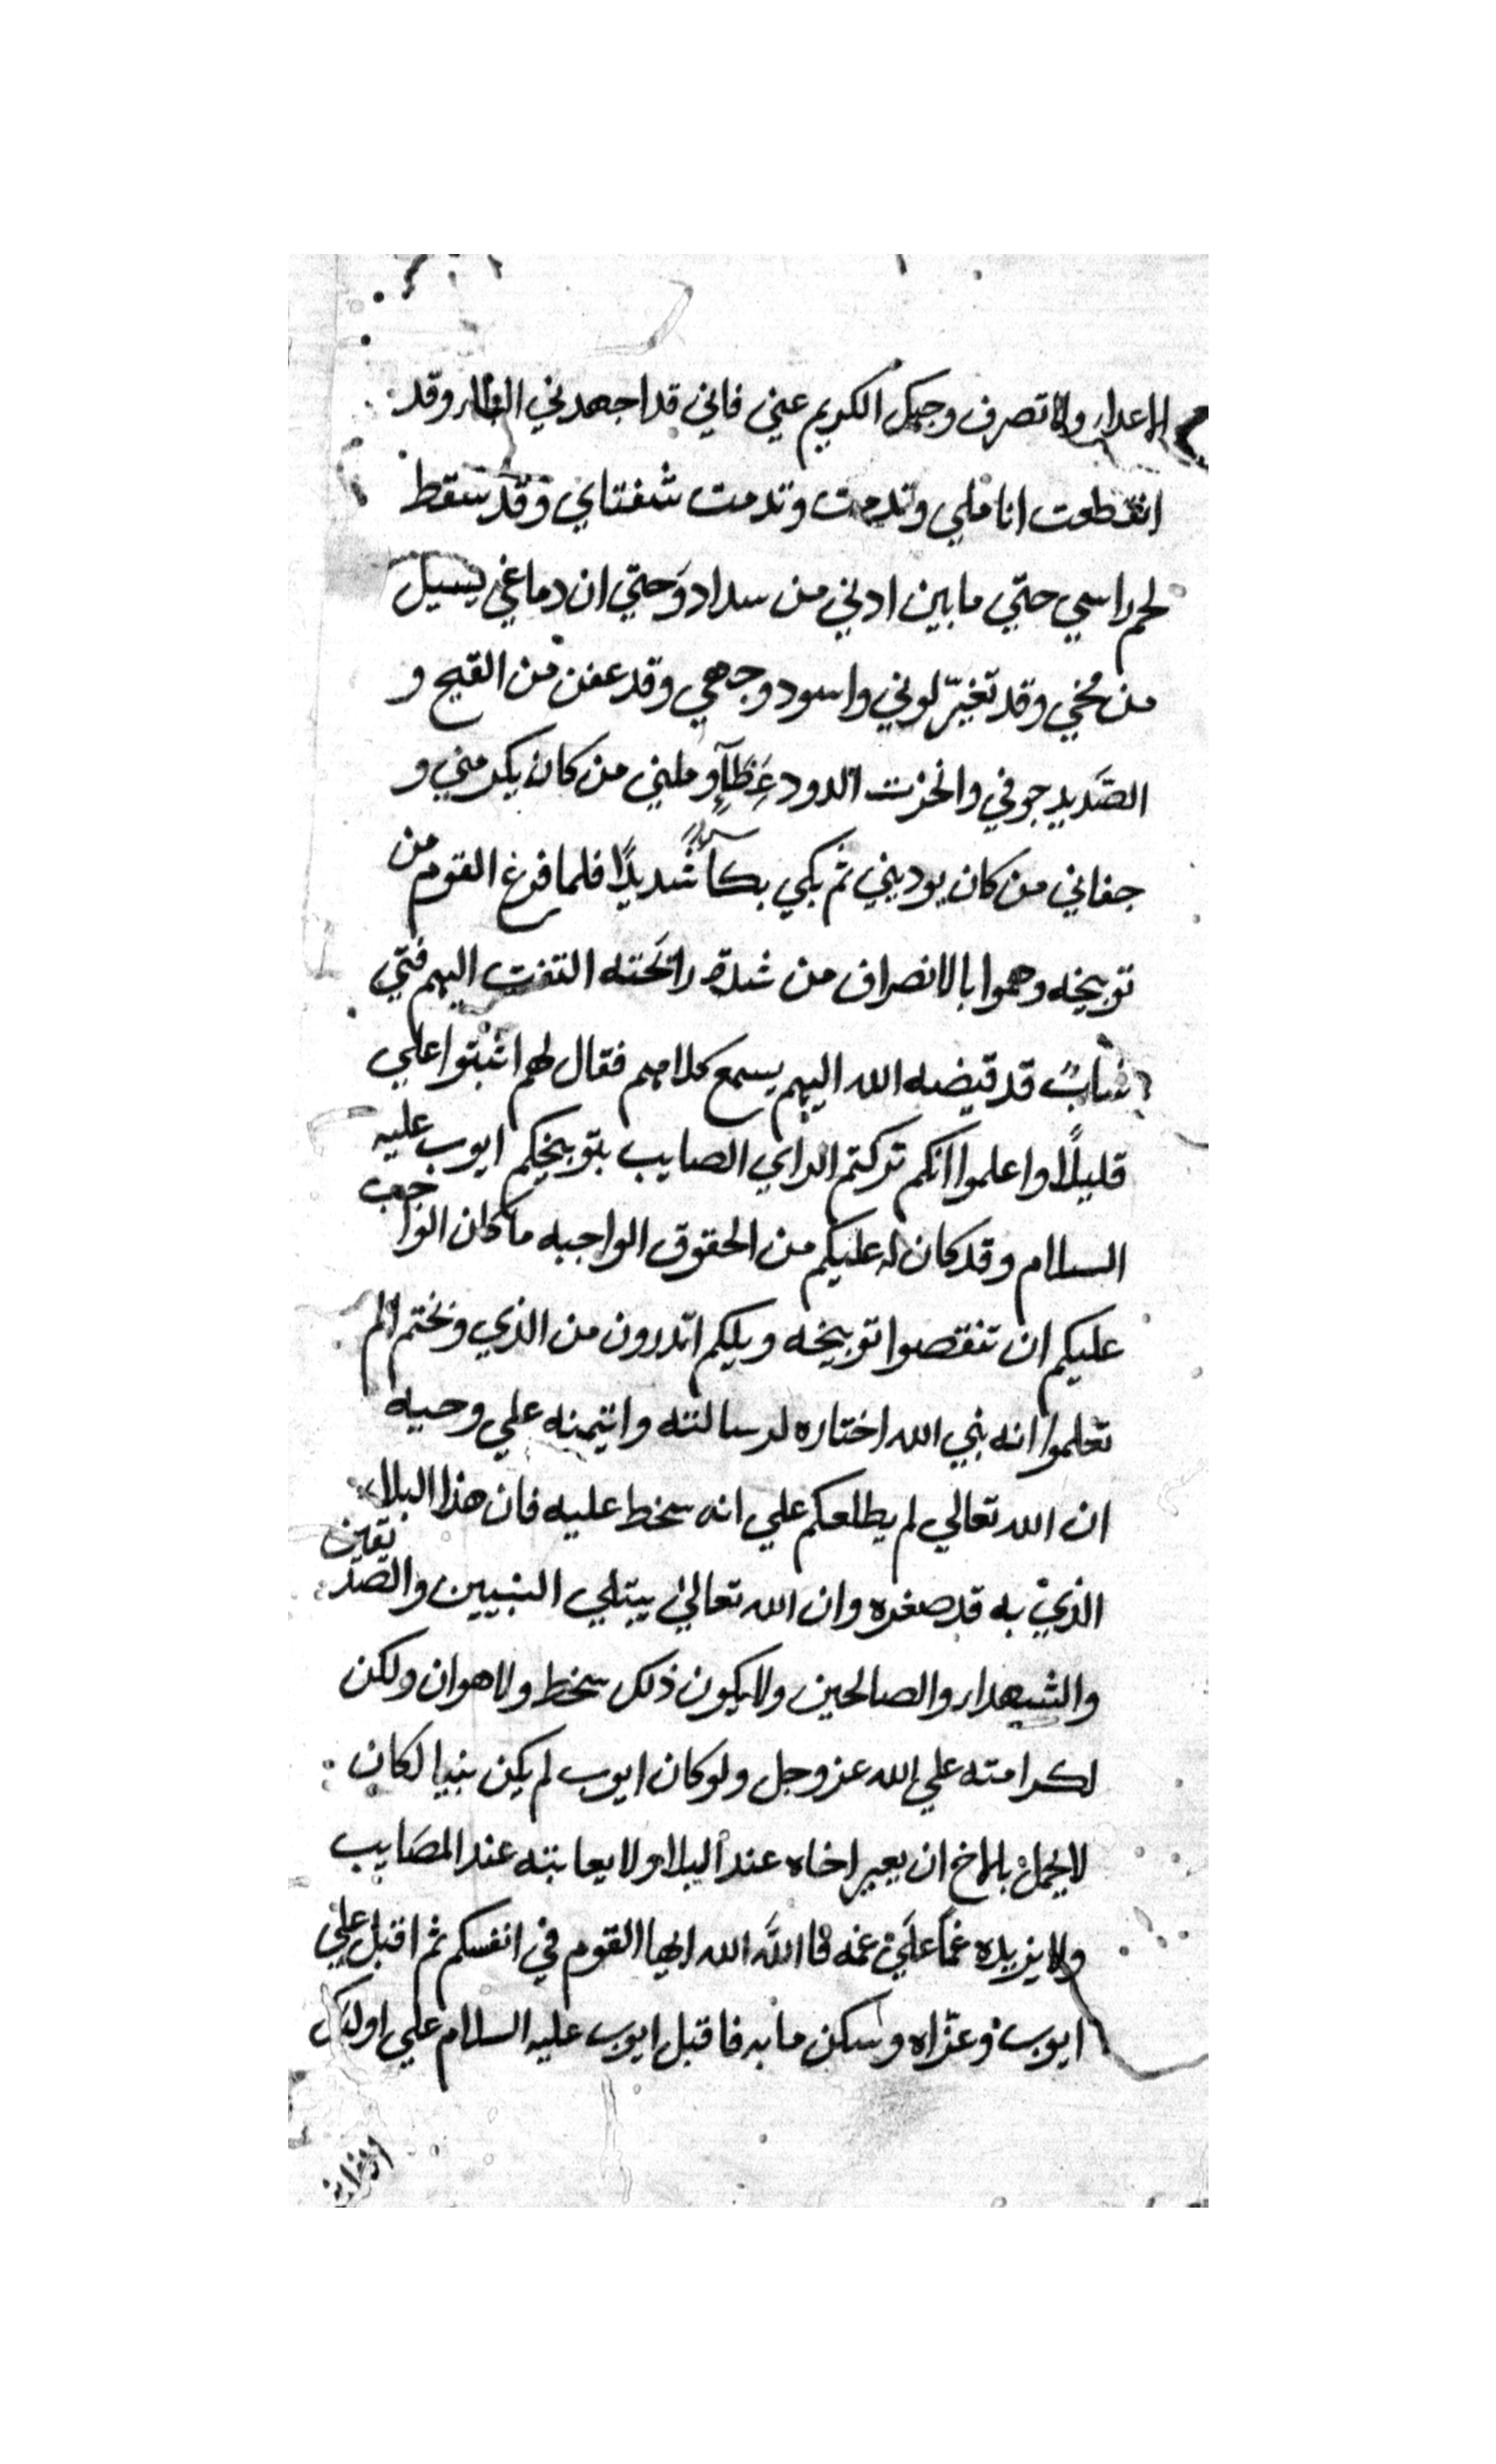 الاعدا ولا تصرف وجهك الكريم عني فاني قد اجهدني البلا وقد
انقطعت اناملي وتدمت وتدمت شفتاي وقد سقط
لحم راسي حتي ما بين ادني من سداد وحتي ان دماغي يسيل
من مخي وقد تغيّر لوني واسود وجهي وقد عفن من القيح و
الصَّديد جوفي وانخزت الدود عَظَامي وملني من كان يكرمني و
جفاني من كان يوديني ثم بكي بكاً شديدًا فلما فرغ القوم من
توبيخه وهموا بالانصراف من شدة رائحته التفت اليهم فتي
شابٌ قد قيضه الله اليهم يسمع كلامهم فقال لهم اثبتوا علي
قليلًا واعلموا انكم تركتم الراي الصايب بتوبيخكم ايوب عليه
السلام وقد كان له عليكم من الحقوق الواجبه ما كان الواجب
عليكم ان تنقصوا توبيخه ويلكم اتدرون من الذي وبختم الم
تعلموا انه نبي الله اختاره لرسالته وايتمنه علي وحيه
ان الله تعالي لم يطلعكم علي انه سخط عليه فان هذا البلاء
الذي به قد صغره وان الله تعالي يبتلي النبيين والصّديقين
والشهدا والصالحين ولا يكون ذلك سخط ولا هوان ولكن
لكرامته علي الله عز وجل ولو كان ايوب لم يكن نبيا لكان
لا يجمل بالاخ ان يعير اخاه عند البلا ولا يعاتبه عند المصَايب
ولا يزيده غماً علي غمه فا اللَّه الله ايها القوم في انفسكم ثم اقبل علي
ايوب وعزّاه وسكن ما به فاقبل ايوب عليه السلام علي اولئك